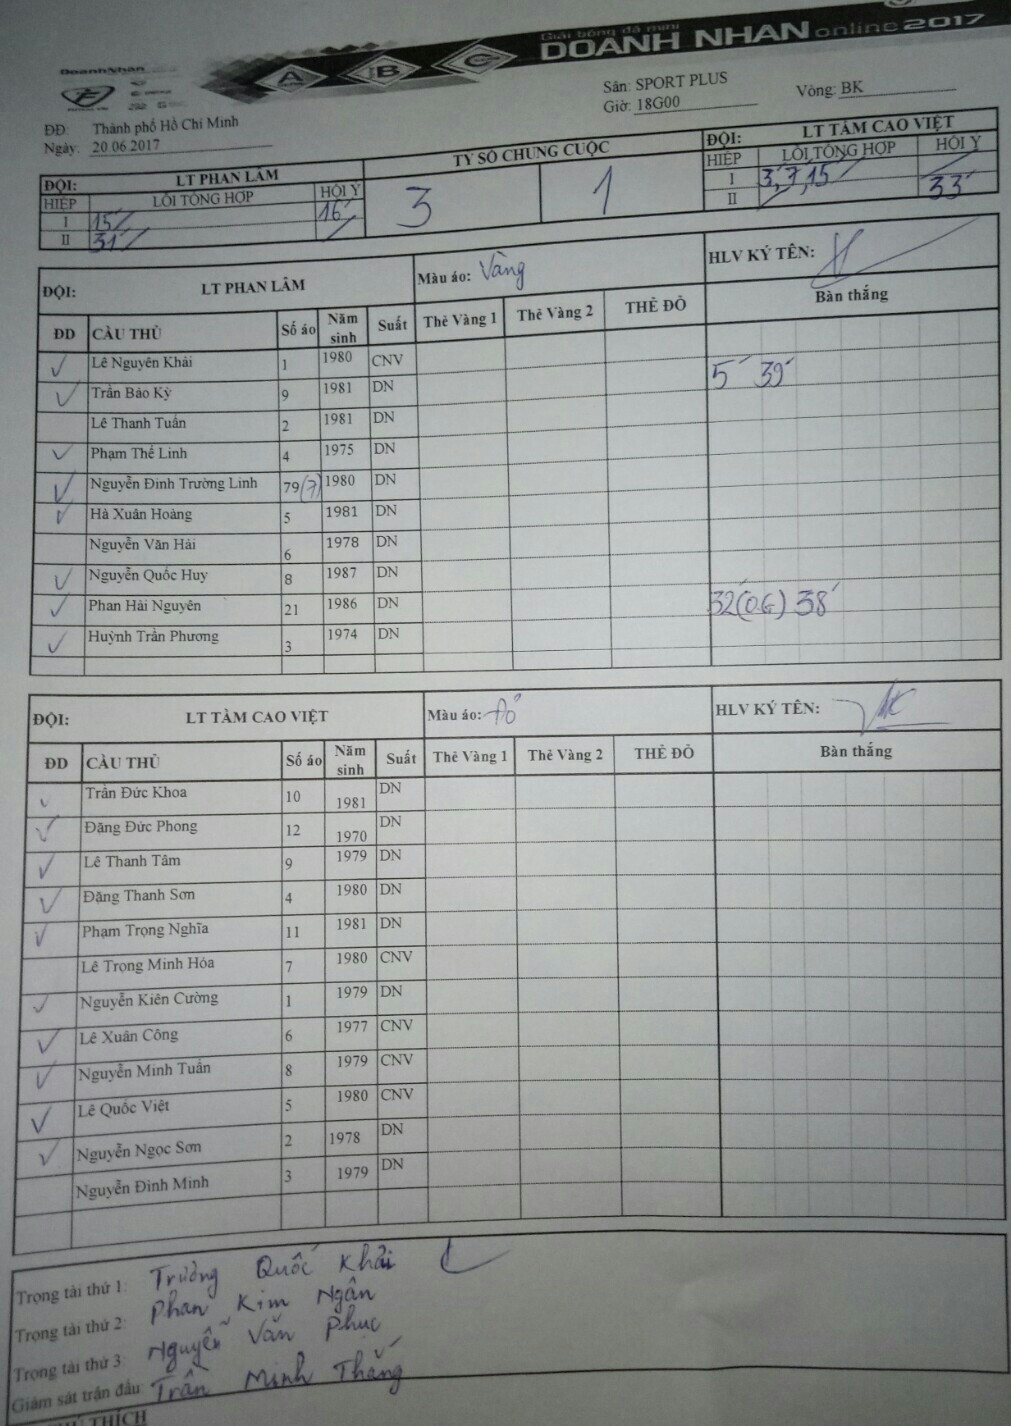 Giải bóng đá mini
DOANH NHAN online 2017
A B C
DoanhNhan
Sân: SPORT PLUS
Vòng: BK
ĐĐ: Thành phố Hồ Chí Minh
Giờ: 18G00
Ngày: 20 06 2017
ĐỘI: LT PHAN LÂM
TỶ SỐ CHUNG CUỘC
ĐỘI: LT TẦM CAO VIỆT
HIỆP LỖI TỔNG HỢP HỘI Ý
3 1
HIỆP LỖI TỔNG HỢP HỘI Ý
I 15' 16'
II 31'
I 3', 7', 15'
II 33'
ĐỘI: LT PHAN LÂM Màu áo: Vàng HLV KÝ TÊN:
ĐD CẦU THỦ Số áo Năm sinh Suất Thẻ Vàng 1 Thẻ Vàng 2 THẺ ĐỎ Bàn thắng
Lê Nguyên Khải 1 1980 CNV
Trần Bảo Kỳ 9 1981 DN 5' 39'
Lê Thanh Tuấn 2 1981 DN
Phạm Thế Linh 4 1975 DN
Nguyễn Đình Trường Linh 79 (7) 1980 DN
Hà Xuân Hoàng 5 1981 DN
Nguyễn Văn Hải 6 1978 DN
Nguyễn Quốc Huy 8 1987 DN
Phan Hải Nguyên 21 1986 DN 32'(O.G) 38'
Huỳnh Trần Phương 3 1974 DN
ĐỘI: LT TẦM CAO VIỆT Màu áo: Đỏ HLV KÝ TÊN:
ĐD CẦU THỦ Số áo Năm sinh Suất Thẻ Vàng 1 Thẻ Vàng 2 THẺ ĐỎ Bàn thắng
Trần Đức Khoa 10 1981 DN
Đặng Đức Phong 12 1970 DN
Lê Thanh Tâm 9 1979 DN
Đặng Thanh Sơn 4 1980 DN
Phạm Trọng Nghĩa 11 1981 DN
Lê Trọng Minh Hòa 7 1980 CNV
Nguyễn Kiên Cường 1 1979 DN
Lê Xuân Công 6 1977 CNV
Nguyễn Minh Tuấn 8 1979 CNV
Lê Quốc Việt 5 1980 CNV
Nguyễn Ngọc Sơn 2 1978 DN
Nguyễn Đình Minh 3 1979 DN
Trọng tài thứ 1: Trương Quốc Khải
Trọng tài thứ 2: Phan Kim Ngân
Trọng tài thứ 3: Nguyễn Văn Phục
Giám sát trận đấu: Trần Minh Thắng
CHÚ THÍCH